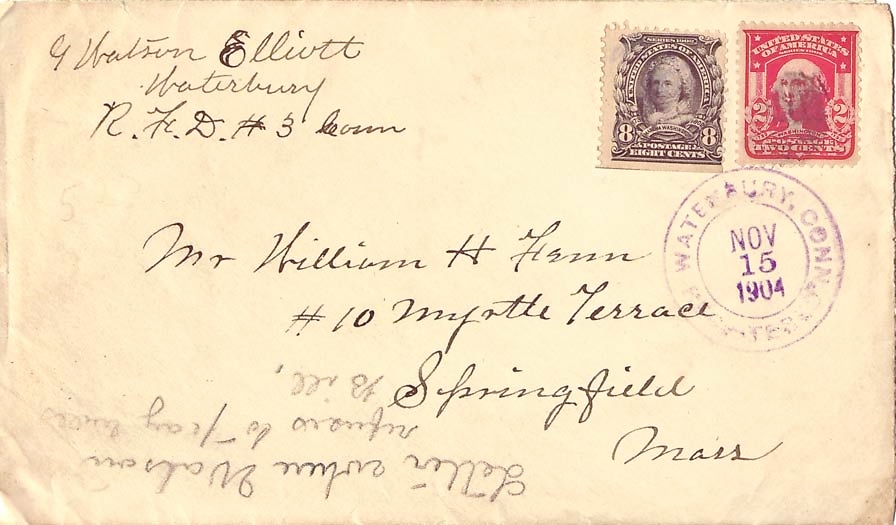 G Watson Elliott
Waterbury
R. F. D. # 3 Conn
SERIES 1902
UNITED STATES OF AMERICA
8 MARTHA WASHINGTON 8
POSTAGE
EIGHT CENTS
UNITED STATES
OF AMERICA
2 WASHINGTON 2
POSTAGE
TWO CENTS
WATERBURY, CONN.
NOV
15
1904
Mr William H Fenn
# 10 Myrtle Terrace
Springfield
Mass
Letter when Watson
refuses to pay
Bill,